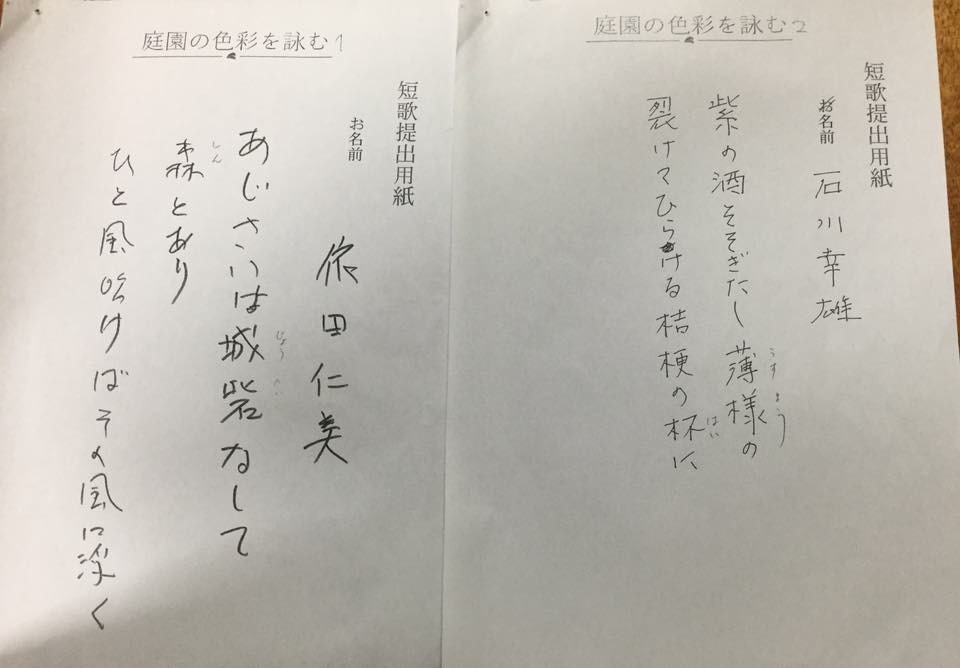 庭園の色彩を詠む1
短歌提出用紙
お名前 依田仁美
じょうさい
あじさいは城砦なして
しん
森とあり
ひと風吹けばその風に深く
庭園の色彩を詠む2
短歌提出用紙
お名前 石川幸雄
うすよう
紫の酒そそぎたし薄様の
はい
裂けてひらける桔梗の杯に